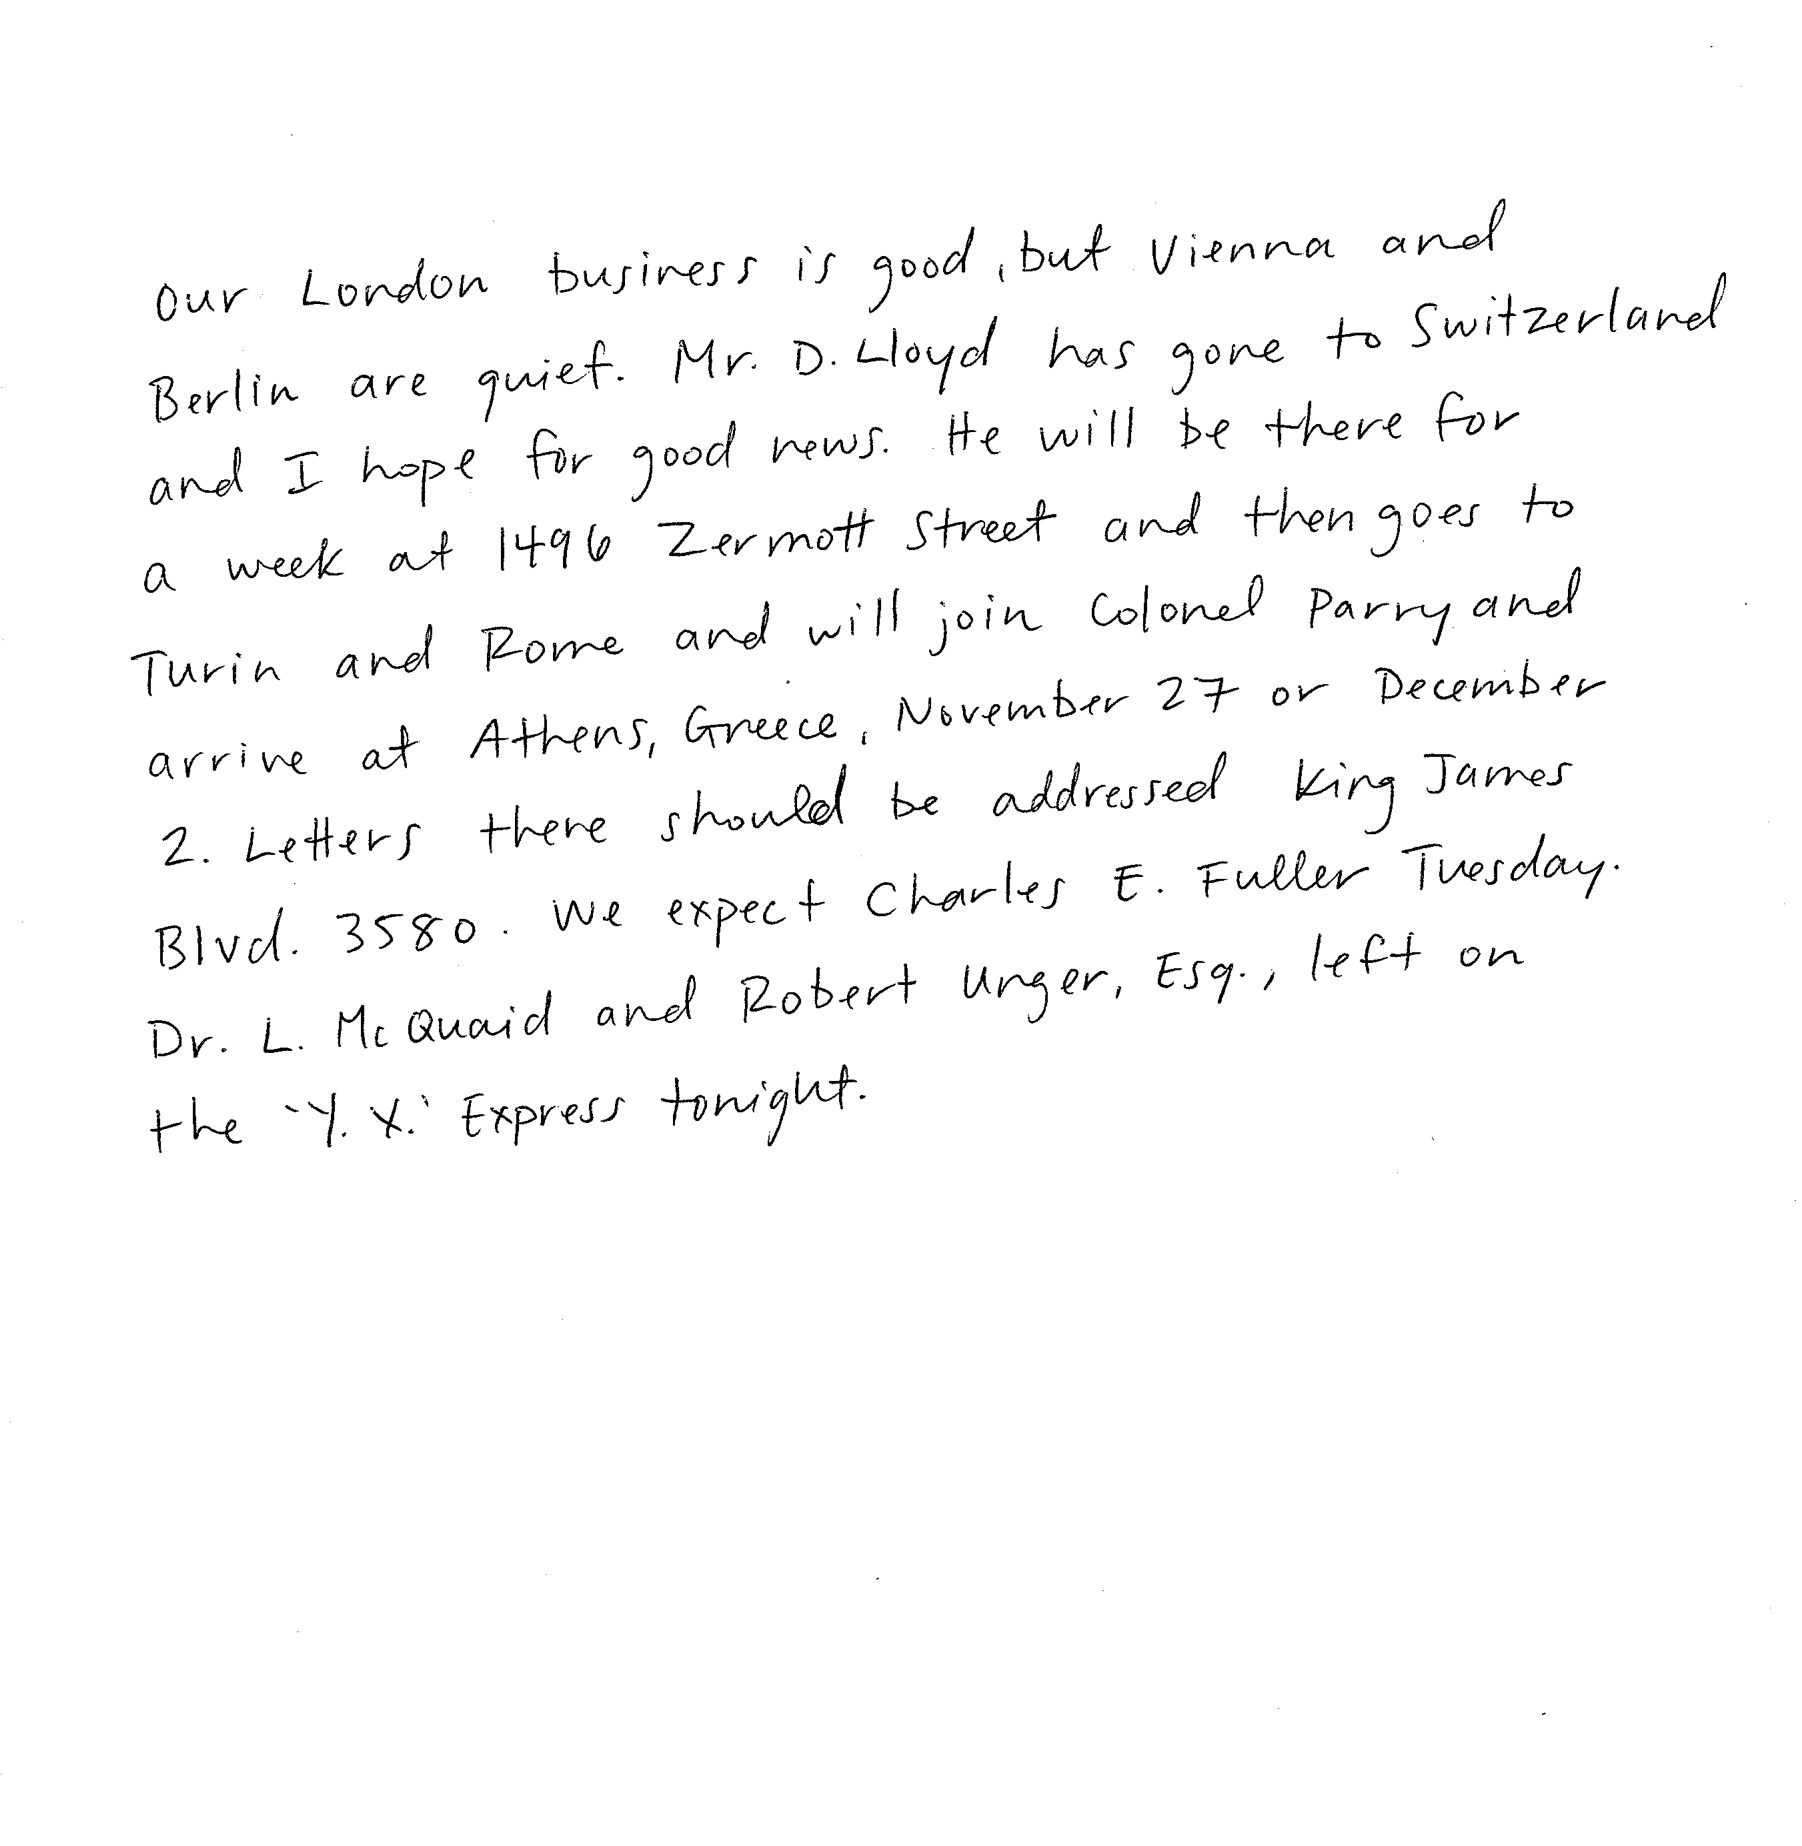 Our London business is good, but Vienna and
Berlin are quiet. Mr. D. Lloyd has gone to Switzerland
and I hope for good news. He will be there for
a week at 1496 Zermott Street and then goes to
Turin and Rome and will join Colonel Parry and
arrive at Athens, Greece, November 27 or December
2. Letters there should be addressed King James
Blvd. 3580. We expect Charles E. Fuller Tuesday.
Dr. L. McQuaid and Robert Unger, Esq., left on
the 'Y. X.' Express tonight.